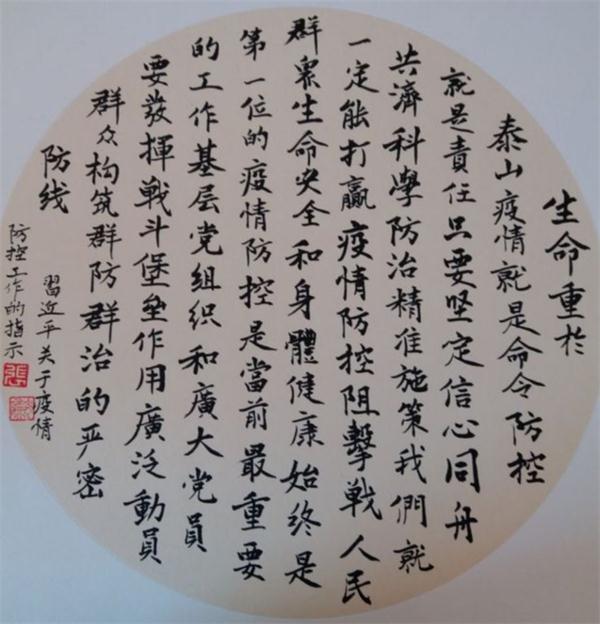 生命重於
泰山疫情就是命令防控
就是責任只要坚定信心同舟
共濟科學防治精准施策我們就
一定能打贏疫情防控阻擊戰人民
群眾生命安全和身體健康始终是
第一位的疫情防控是當前最重要
的工作基层党组织和廣大党員
要發揮戰斗堡垒作用廣泛動員
群众构筑群防群治的严密
防线
習近平关于疫情
防控工作的指示